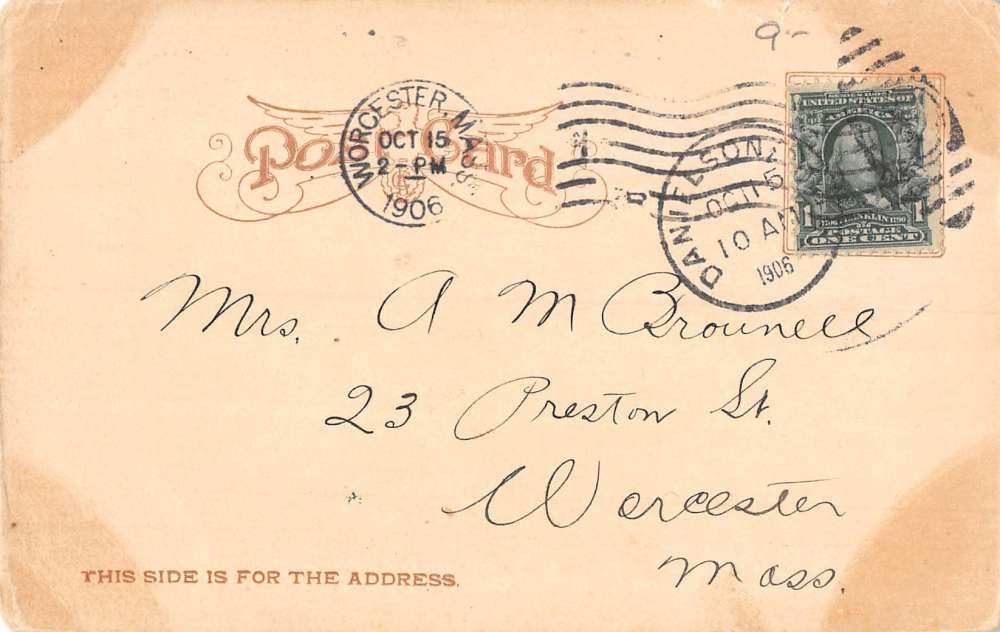 9-
Post Card
WORCESTER MASS.
OCT 15
2-PM
1906
DANIELSON
OCT 15
10 AM
1906
SERIES 1902
UNITED STATES OF
AMERICA
1706 FRANKLIN 1790
1 POSTAGE 1
ONE CENT
Mrs. A M Brownell
23 Preston St.
Worcester
Mass.
THIS SIDE IS FOR THE ADDRESS.